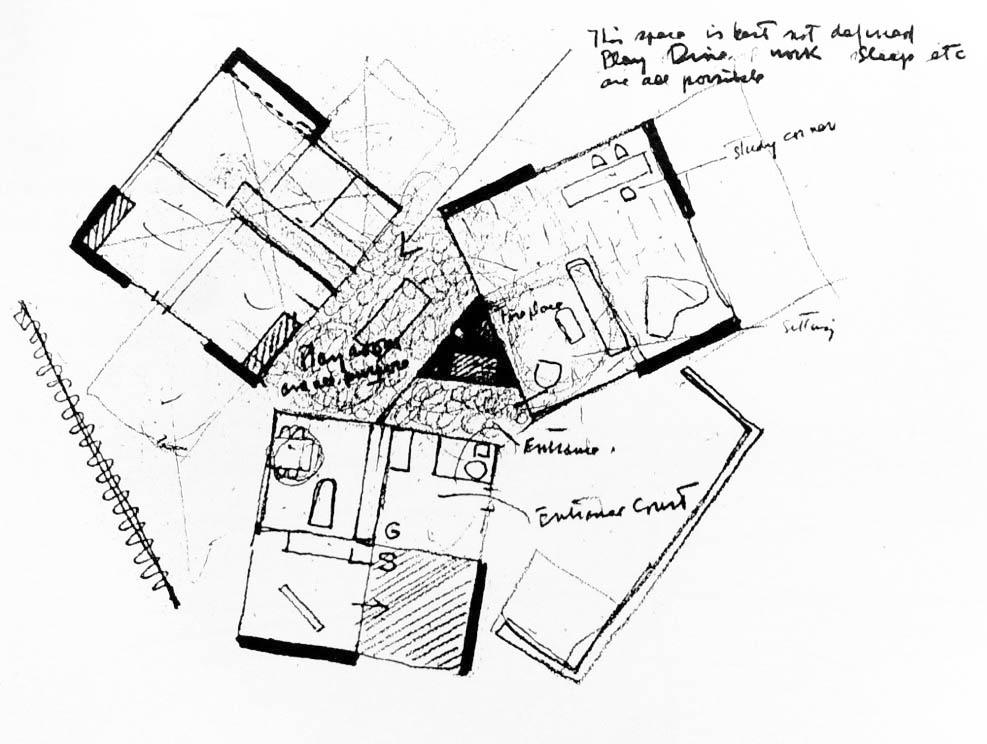 This space is best not defined
Play Dine, work Sleep etc
are all possible
Study corner
L
Fireplace
Sitting
Play
are all purpose
Entrance.
Entrance Court
G
S